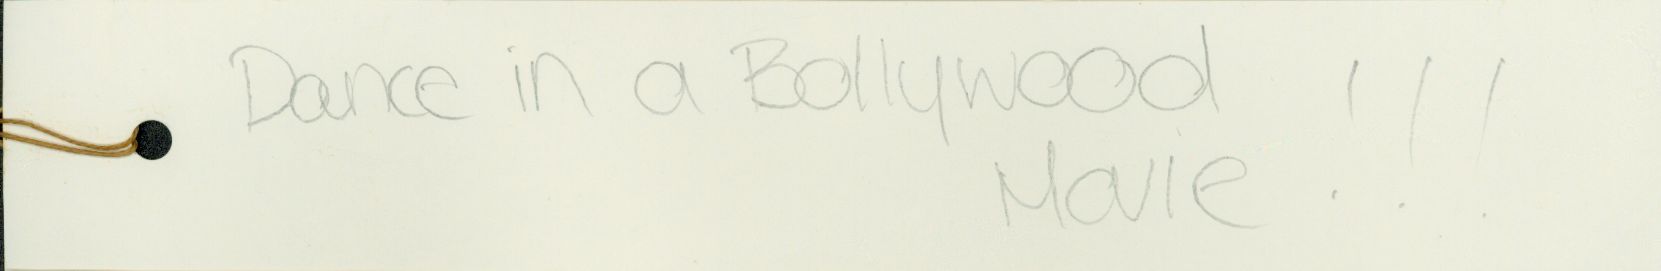 Dance in a Bollywood
Movie !!!